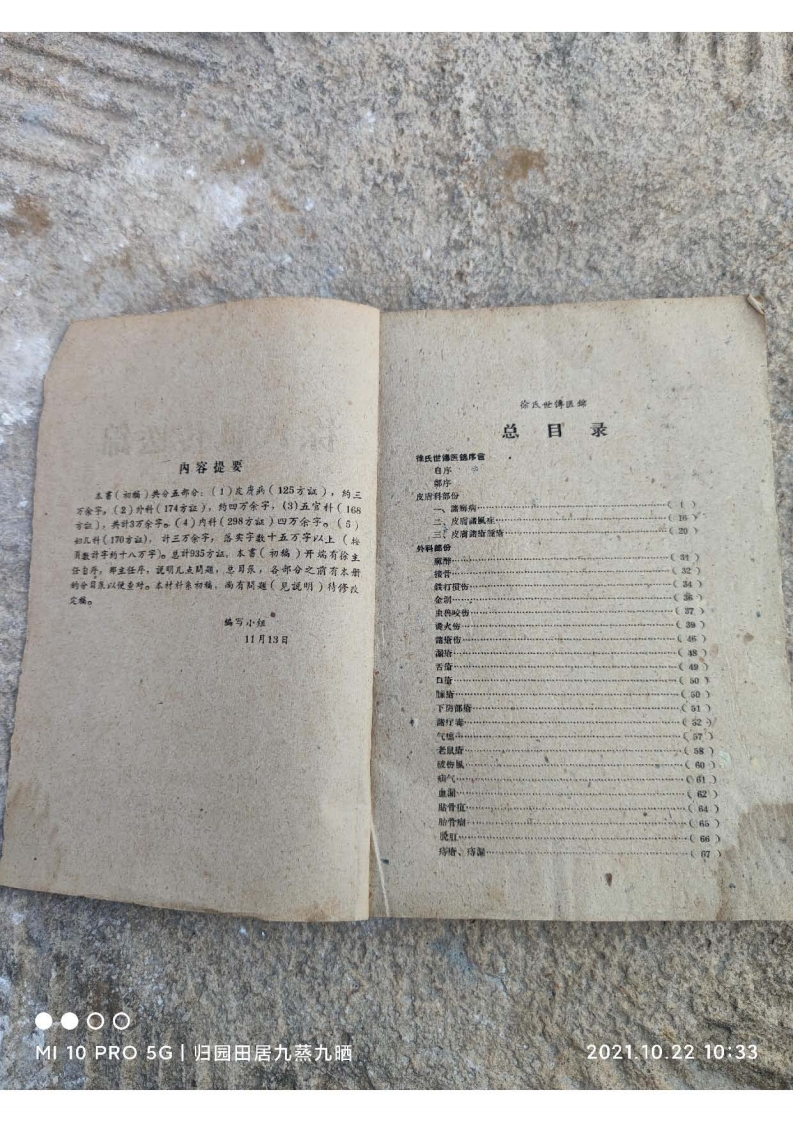 内容提要
本書(初稿)共分五部分:(1)皮膚病(125方証),約三
万余字。(2)外科(174方証),約四万余字,(3)五官科(168
方証),共計3万余字。(4)内科(298方証)四万余字。(5)
妇儿科(170方証),計三万余字,落实字数十五万字以上(按
頁数計字約十八万字)。总計935方証。本書(初稿)开端有徐主
任自序,郭主任序,說明几点問題,总目录,各部分之前有本册
的分目录以便查对。本材料系初稿,尚有問題(見說明)待修改
定稿。
編写小組
11月13日
徐氏世傳医鎊
总目录
徐氏世傳医鎊序言
自序
郭序
皮膚科部份
一、諸癬病(1)
二、皮膚諸風症(16)
三、皮膚諸瘡(20)
外科部份
麻醉(31)
接骨(32)
跌打損伤(34)
金創(36)
虫兽咬伤(37)
烫火伤(39)
諸瘡伤(46)
漏瘡(48)
舌瘡(49)
口瘡(50)
臁瘡(50)
下阴部瘡(51)
諸疔毒(52)
气瘰(57)
老鼠瘡(58)
破伤風(60)
疝气(61)
血漏(62)
貼骨疽(64)
骨瘤(65)
脫肛(66)
痔瘡、痔漏(67)
MI 10 PRO 5G | 归园田居九蒸九晒
2021.10.22 10:33